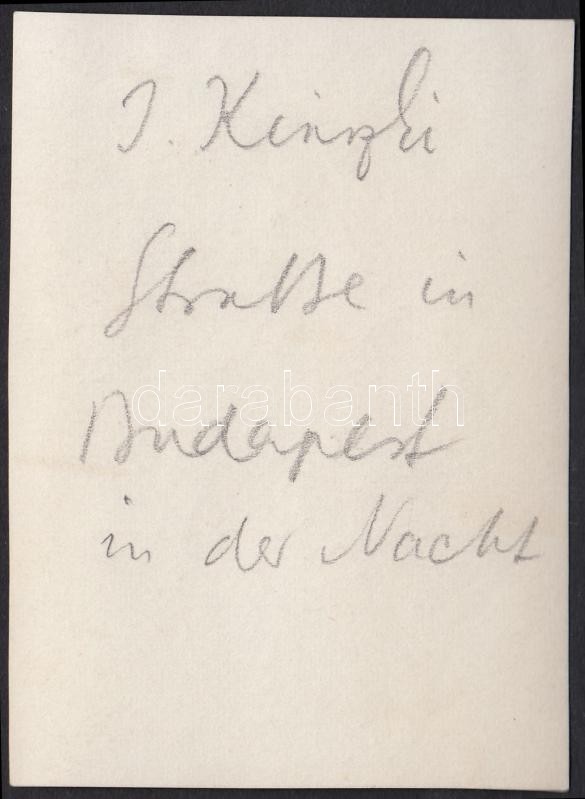 J. Kinszki
Straße in
darabanth
Budapest
in der Nacht